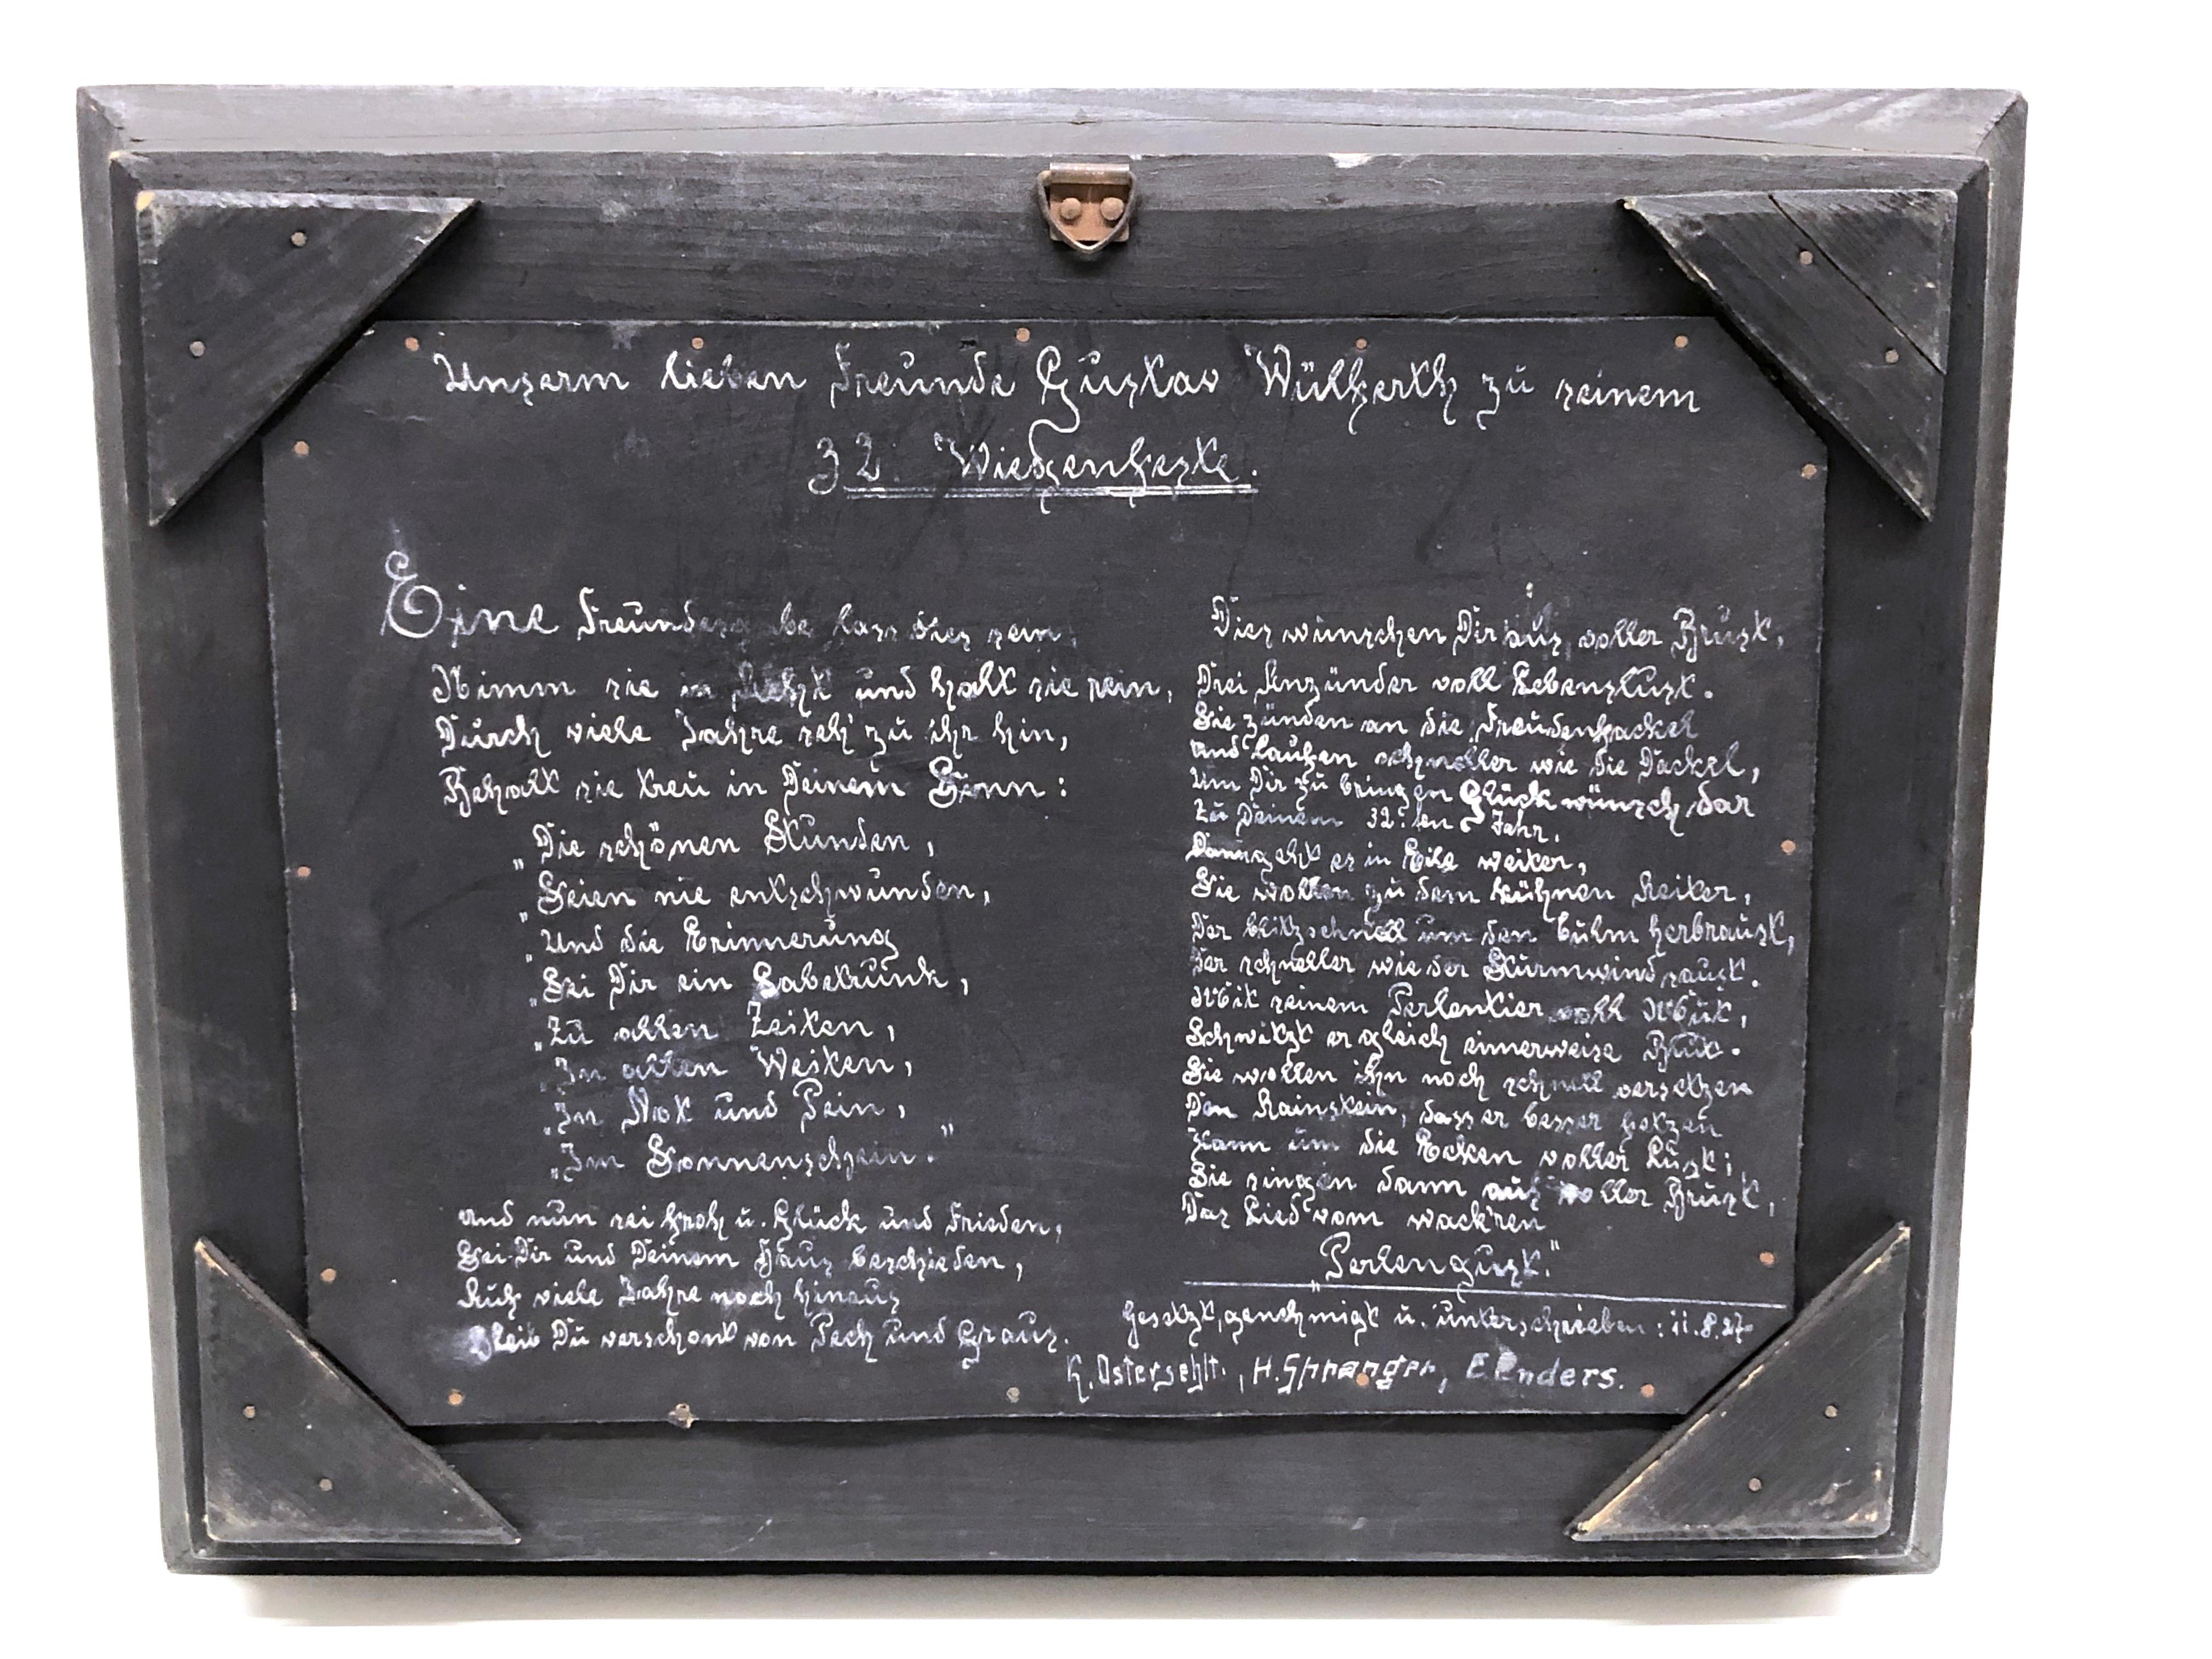 Unserm lieben Freunde Gustav Wülferth zu seinem
32. Wiegenfeste.
Eine Freundesgabe lass dies sein,
Nimm sie in und halt sie rein,
Durch viele Jahre seh' zu ihr hin,
Behalt sie treu in Deinem Sinn:
„Die schönen Stunden,
„Seien nie entschwunden,
„Und die Erinnerung
„Sei Dir ein Labetrunk,
„Zu allen Zeiten,
„In allen Weiten,
„In Not und Pein,
„Im Sonnenschein."
und nun sei froh u. Glück und Frieden,
Sei Dir und Deinem Haus beschieden,
Auf viele Jahre noch hinaus
Bleib Du verschont von Pech und Graus.
Dies wünschen Dir aus voller Brust,
Drei Anzünder voll Lebenslust.
Sie zünden an die Freudenfackel
und laufen schneller wie die Dackel,
Um Dir zu bringen Glückwunsch dar
Zu Deinem 32. ten Jahr.
Dann geht es in Eile weiter,
Sie wollen zu dem kühnen Reiter,
Der blitzschnell um den Culm herbraust,
Der schneller wie der Sturmwind saust.
Mit seinem Perlentier voll Mut,
Schwitzt er gleich eimerweise Blut.
Sie wollen ihn noch schnell versetzen
Den Rainstein, dass er besser hetzen
Kann um die Ecken voller Lust;
Sie singen dann aus voller Brust,
Das Lied vom wack'ren
„Perlengust."
Gesetzt, genehmigt u. unterschrieben: 11.8.27.
K. Ostersehlt., H. Spranger, E. Enders.